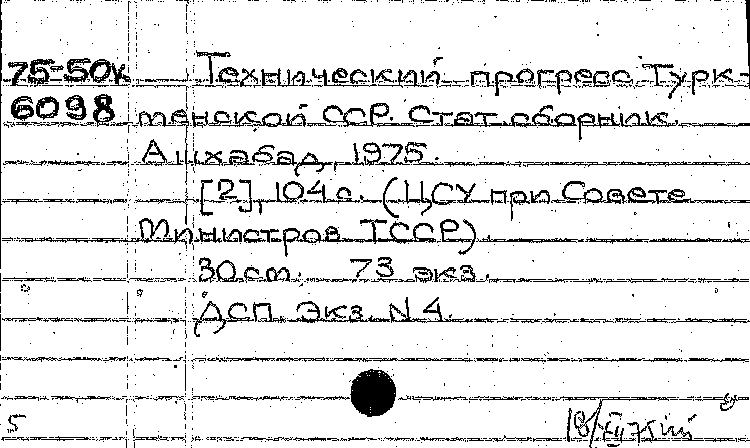 75-50к Технический прогресс Турк-
6098 менской ССР. Стат. сборник.
Ашхабад, 1975.
[2], 104 с. (ЦСУ при Совете
Министров ТССР).
30 см. 73 экз.
ДСП. Экз. N 4.
5
18/XII 75